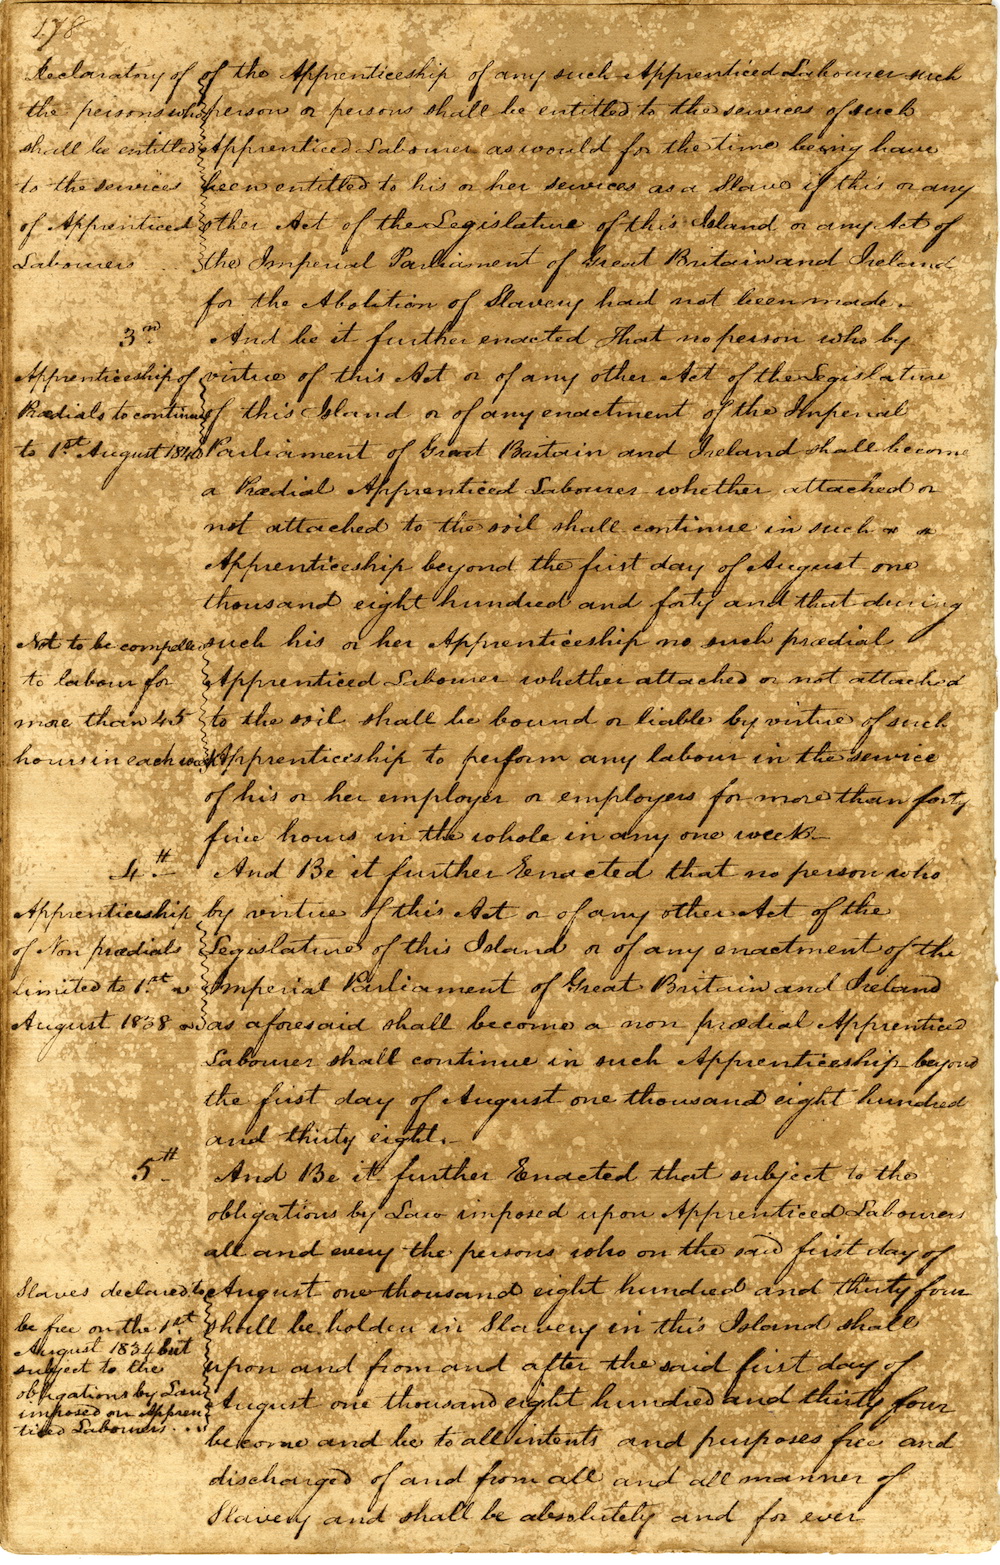 178
Declaratory of
the persons who
shall be entitled
to the services
of Apprenticed
Labourers
of the Apprenticeship of any such Apprenticed Labourer such
person or persons shall be entitled to the services of such
Apprenticed Labourer as would for the time being have
been entitled to his or her services as a Slave if this or any
other Act of the Legislature of this Island or any Act of
the Imperial Parliament of Great Britain and Ireland
for the Abolition of Slavery had not been made.
3rd
Apprenticeship of
Prædials to continue
to 1st August 1840
And be it further enacted that no person who by
virtue of this Act or of any other Act of the Legislature
of this Island or of any enactment of the Imperial
Parliament of Great Britain and Ireland shall become
a Prædial Apprenticed Labourer whether attached or
not attached to the soil shall continue in such
Apprenticeship beyond the first day of August one
thousand eight hundred and forty and that during
Not to be compelled
to labour for
more than 45
hours in each week
such his or her Apprenticeship no such prædial
Apprenticed Labourer whether attached or not attached
to the soil shall be bound or liable by virtue of such
Apprenticeship to perform any labour in the service
of his or her employer or employers for more than forty
five hours in the whole in any one week
4th
Apprenticeship
of Non prædials
limited to 1st
August 1838
And Be it further Enacted that no person who
by virtue of this Act or of any other Act of the
Legislature of this Island or of any enactment of the
Imperial Parliament of Great Britain and Ireland
as aforesaid shall become a non prædial Apprenticed
Labourer shall continue in such Apprenticeship beyond
the first day of August one thousand eight hundred
and thirty eight.
5th
And Be it further Enacted that subject to the
obligations by Law imposed upon Apprenticed Labourers
all and every the persons who on the said first day of
Slaves declared to
be free on the 1st
August 1834 but
subject to the
obligations by Law
imposed on Appren
ticed Labourers
August one thousand eight hundred and thirty four
shall be holden in Slavery in this Island shall
upon and from and after the said first day of
August one thousand eight hundred and thirty four
become and be to all intents and purposes free and
discharged of and from all and all manner of
Slavery and shall be absolutely and for ever